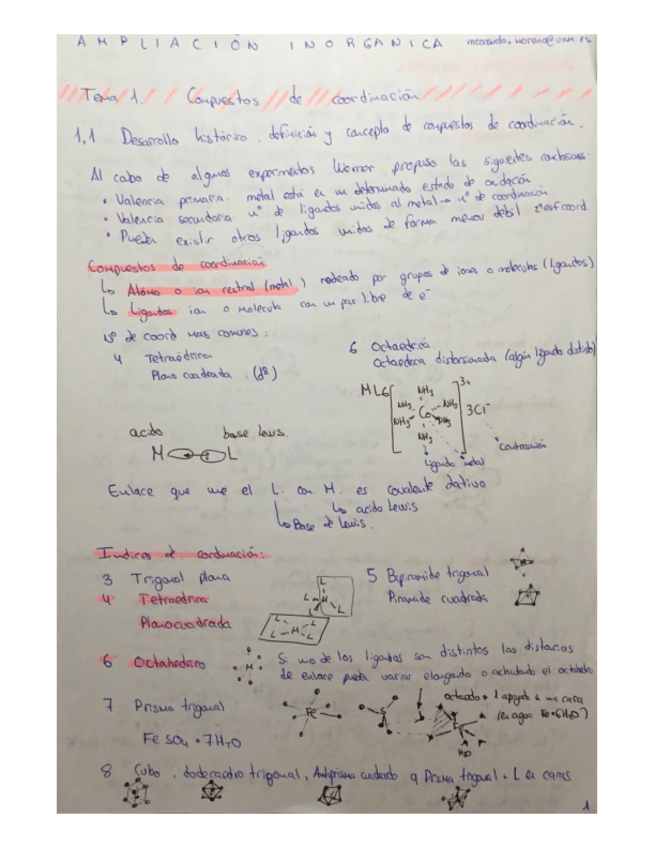 AMPLIACIÓN INORGANICA
Tema 1 Compuestos de coordinación
1.1 Desarrollo histórico, definición y concepto de compuestos de coordinación.
Al cabo de algunos experimentos Werner propuso las siguientes
• Valencia primaria: metal está en un determinado estado de oxidación
• Valencia secundaria: nº de ligandos unidos al metal → nº de coordinación
• Pueden existir otros ligandos unidos de forma menos debil 2ª esf coord
Compuestos de coordinación
↳ Atomo o ion central (metal) rodeado por grupos de iones o moleculas (ligandos)
↳ Ligandos ion o molecula con un par libre de e⁻
Nº de coord mas comunes:
4 Tetraédrica
Plano cuadrada: (d8)
6 Octaedrica
Octaedrica distorsionada (algún ligando distinto)
ML6
NH₃
NH₃ NH₃
Co
NH₃ NH₃
NH₃
3+
3Cl⁻
Contraion
ligando metal
acido base lewis.
M L
Enlace que une el L. con M. es covalente dativo
↳ acido Lewis
↳ Base de Lewis.
Indices de cordinación:
3 Trigonal plana
4 Tetraedrica
Planocuadrada
L
L M L
L
L L
M
L L
5 Bipiramide trigonal
Piramide cuadrada
6 Octahedrico
M
Si uno de los ligandos son distintos las distacias
de enlace puede variar elongando o achatando el octahedro
7 Prisma trigonal
FeSO₄ • 7H₂O
Fe
octaedro + 1 apoyado a una cara
(en agua Fe•6H₂O)
Fe
H₂O
8 Cubo, dodecaedro trigonal, Antiprisma cuadrado o Prisma trigonal + L en caras
1